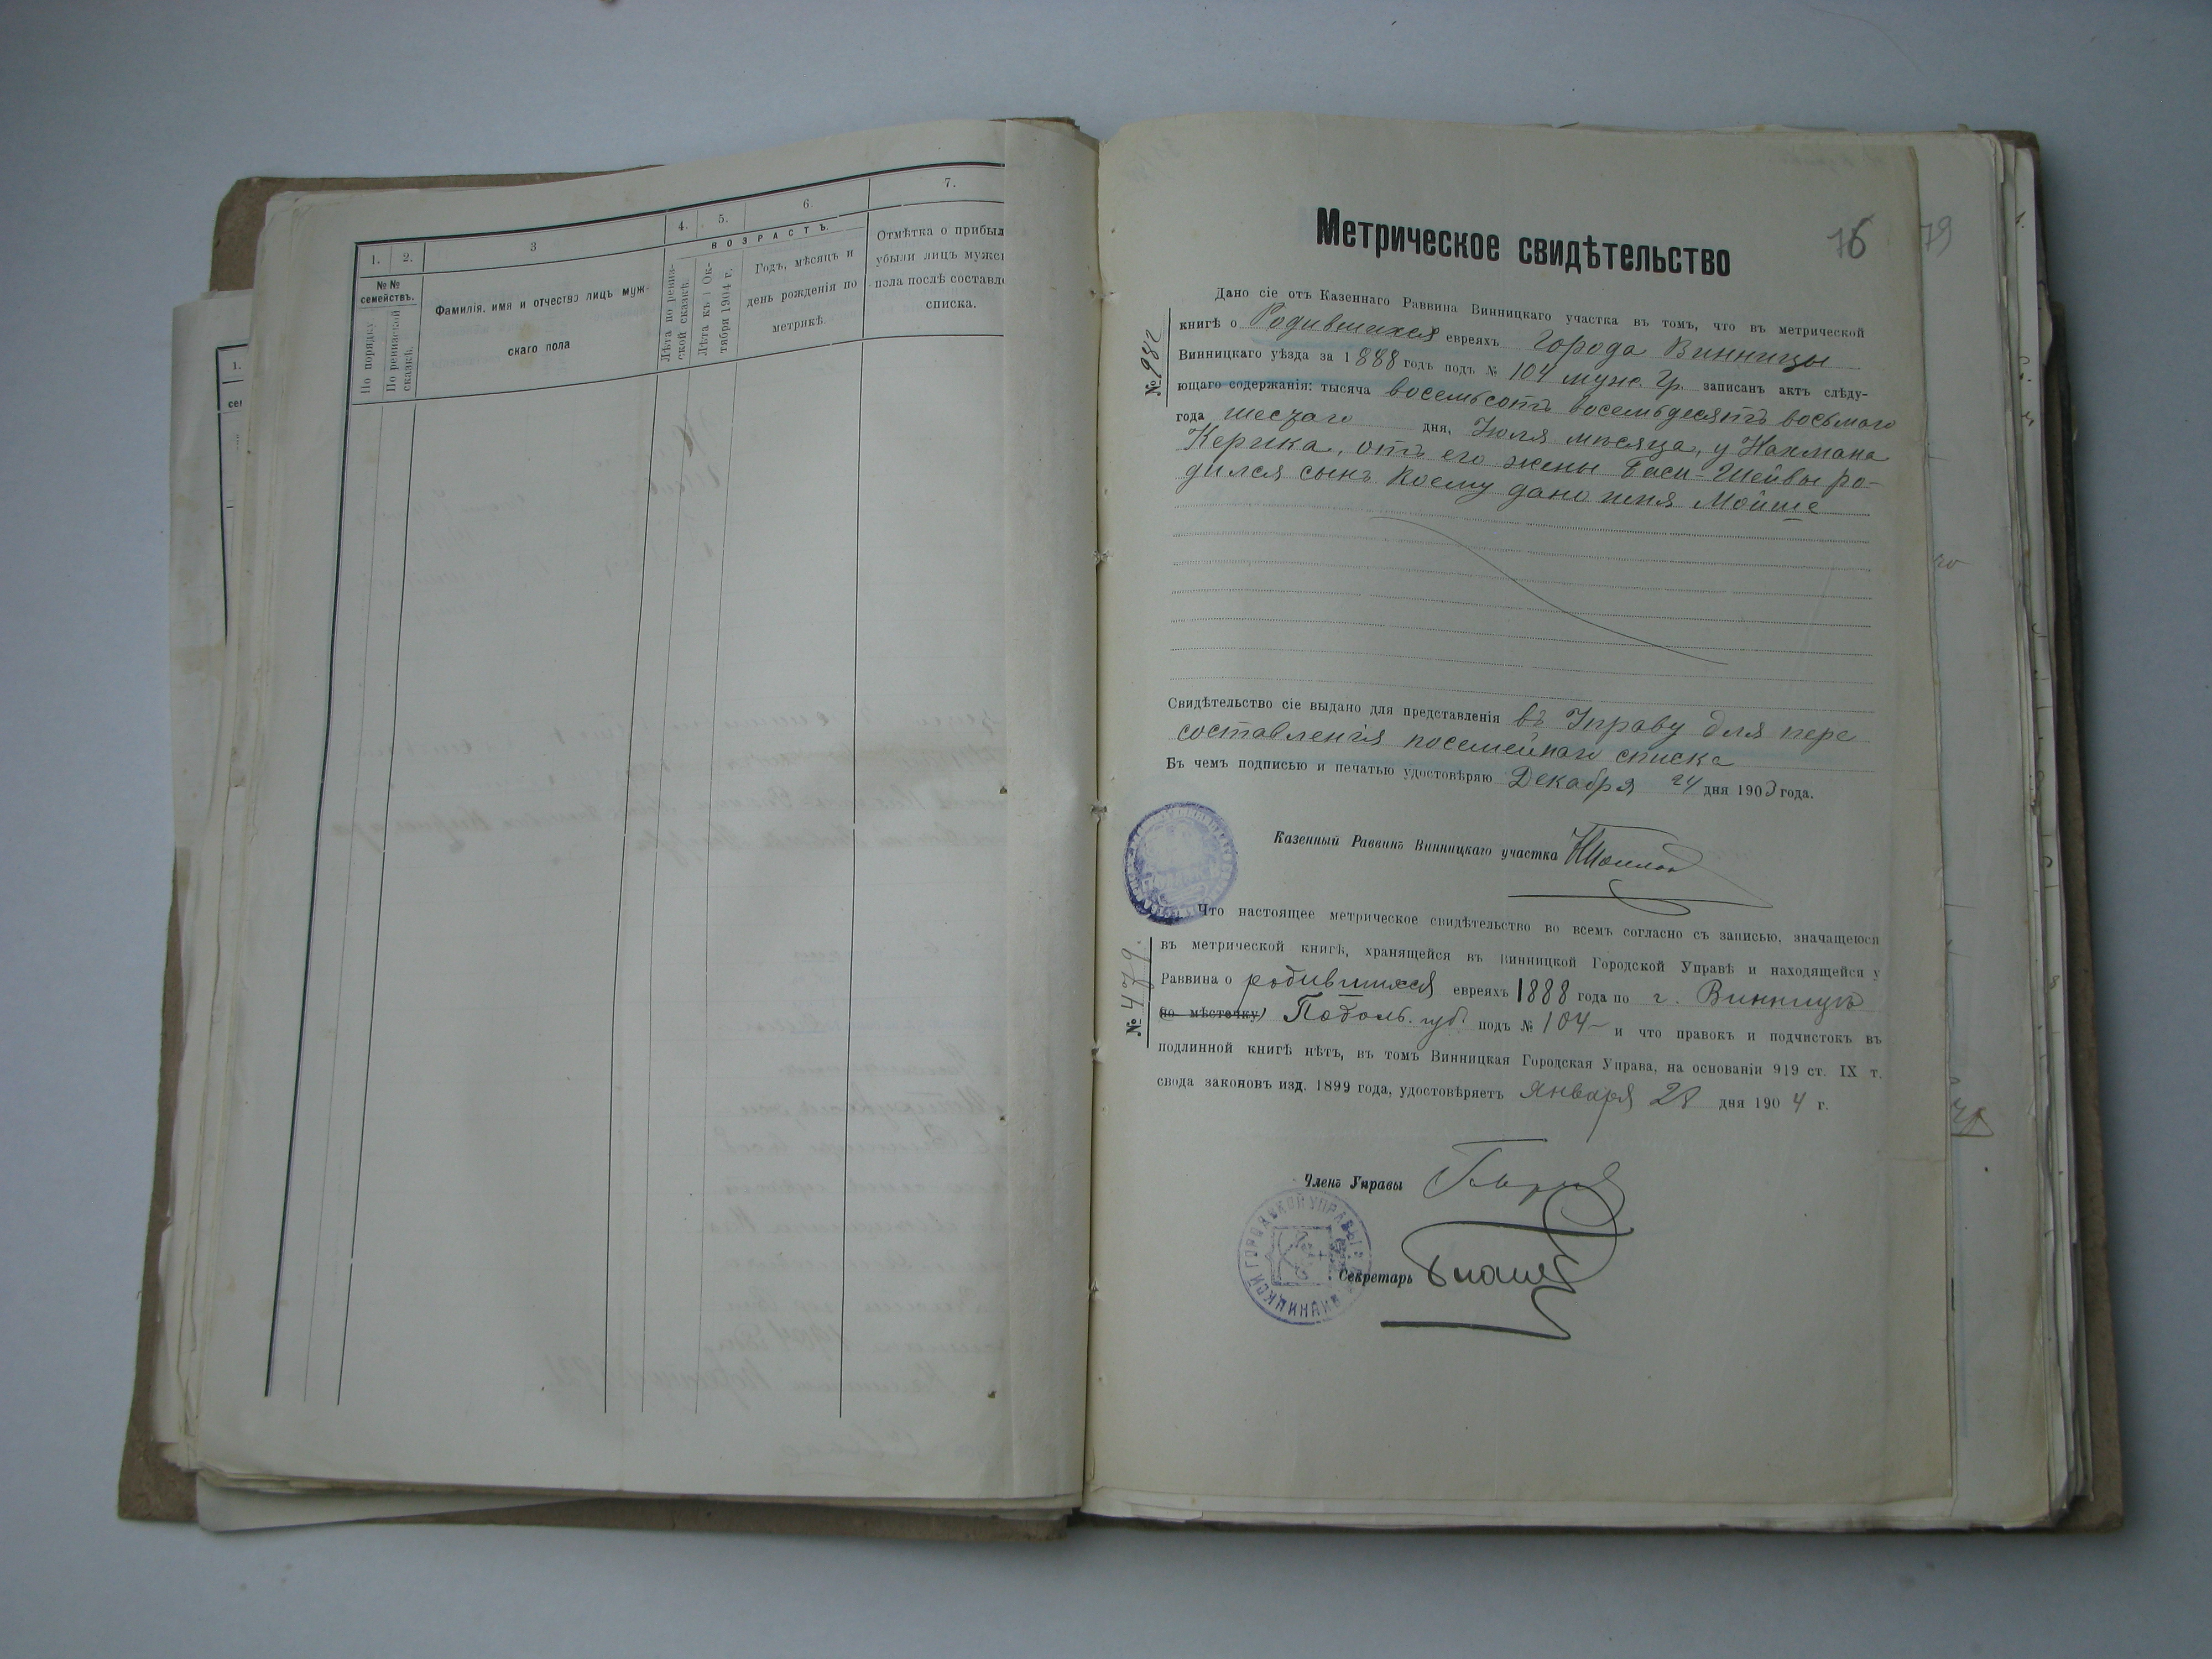 1.
2.
3
4.
5.
6.
7.
№№
семействъ.
По порядку
По ревизской
сказкѣ.
Фамилія, имя и отчество лицъ муж-
скаго пола
ВОЗРАСТЪ.
Лѣта по ревиз-
ской сказкѣ.
Лѣта къ 1 Ок-
тября 1904 г.
Годъ, мѣсяцъ и
день рожденія по
метрикѣ.
Отмѣтка о прибыл
убыли лицъ мужс
пола послѣ составле
списка.
1.
сем
Метрическое свидѣтельство
76
79
№ 982
Дано сіе отъ Казеннаго Раввина Винницкаго участка въ томъ, что въ метрической
книгѣ о Родившихся евреяхъ Города Винницы
Винницкаго уѣзда за 1888 годъ подъ № 104 муж. гр. записанъ актъ слѣду-
ющаго содержанія: тысяча восемьсотъ восемьдесятъ восьмого
года шестаго дня, Іюля мѣсяца, у Нахмана
Керика, отъ его жены Баси-Шейвы ро-
дился сынъ коему дано имя Мойше
Свидѣтельство сіе выдано для представленія въ Управу для пере
составленія посемейнаго списка
Въ чемъ подписью и печатью удостовѣряю Декабря 24 дня 1903 года.
Казенный Раввинъ Винницкаго участка
№ 479.
Что настоящее метрическое свидѣтельство во всемъ согласно съ записью, значащеюся
въ метрической книгѣ, хранящейся въ Винницкой Городской Управѣ и находящейся у
Раввина о родившихся евреяхъ 1888 года по г. Винницѣ
(по мѣстечку) Подоль. губ. подъ № 104 – и что правокъ и подчистокъ въ
подлинной книгѣ нѣтъ, въ томъ Винницкая Городская Управа, на основаніи 919 ст. IX т.
свода законовъ изд. 1899 года, удостовѣряетъ Января 28 дня 1904 г.
Членъ Управы
ВИННИЦКОЙ ГОРОДСКОЙ УПРАВЫ
Секретарь